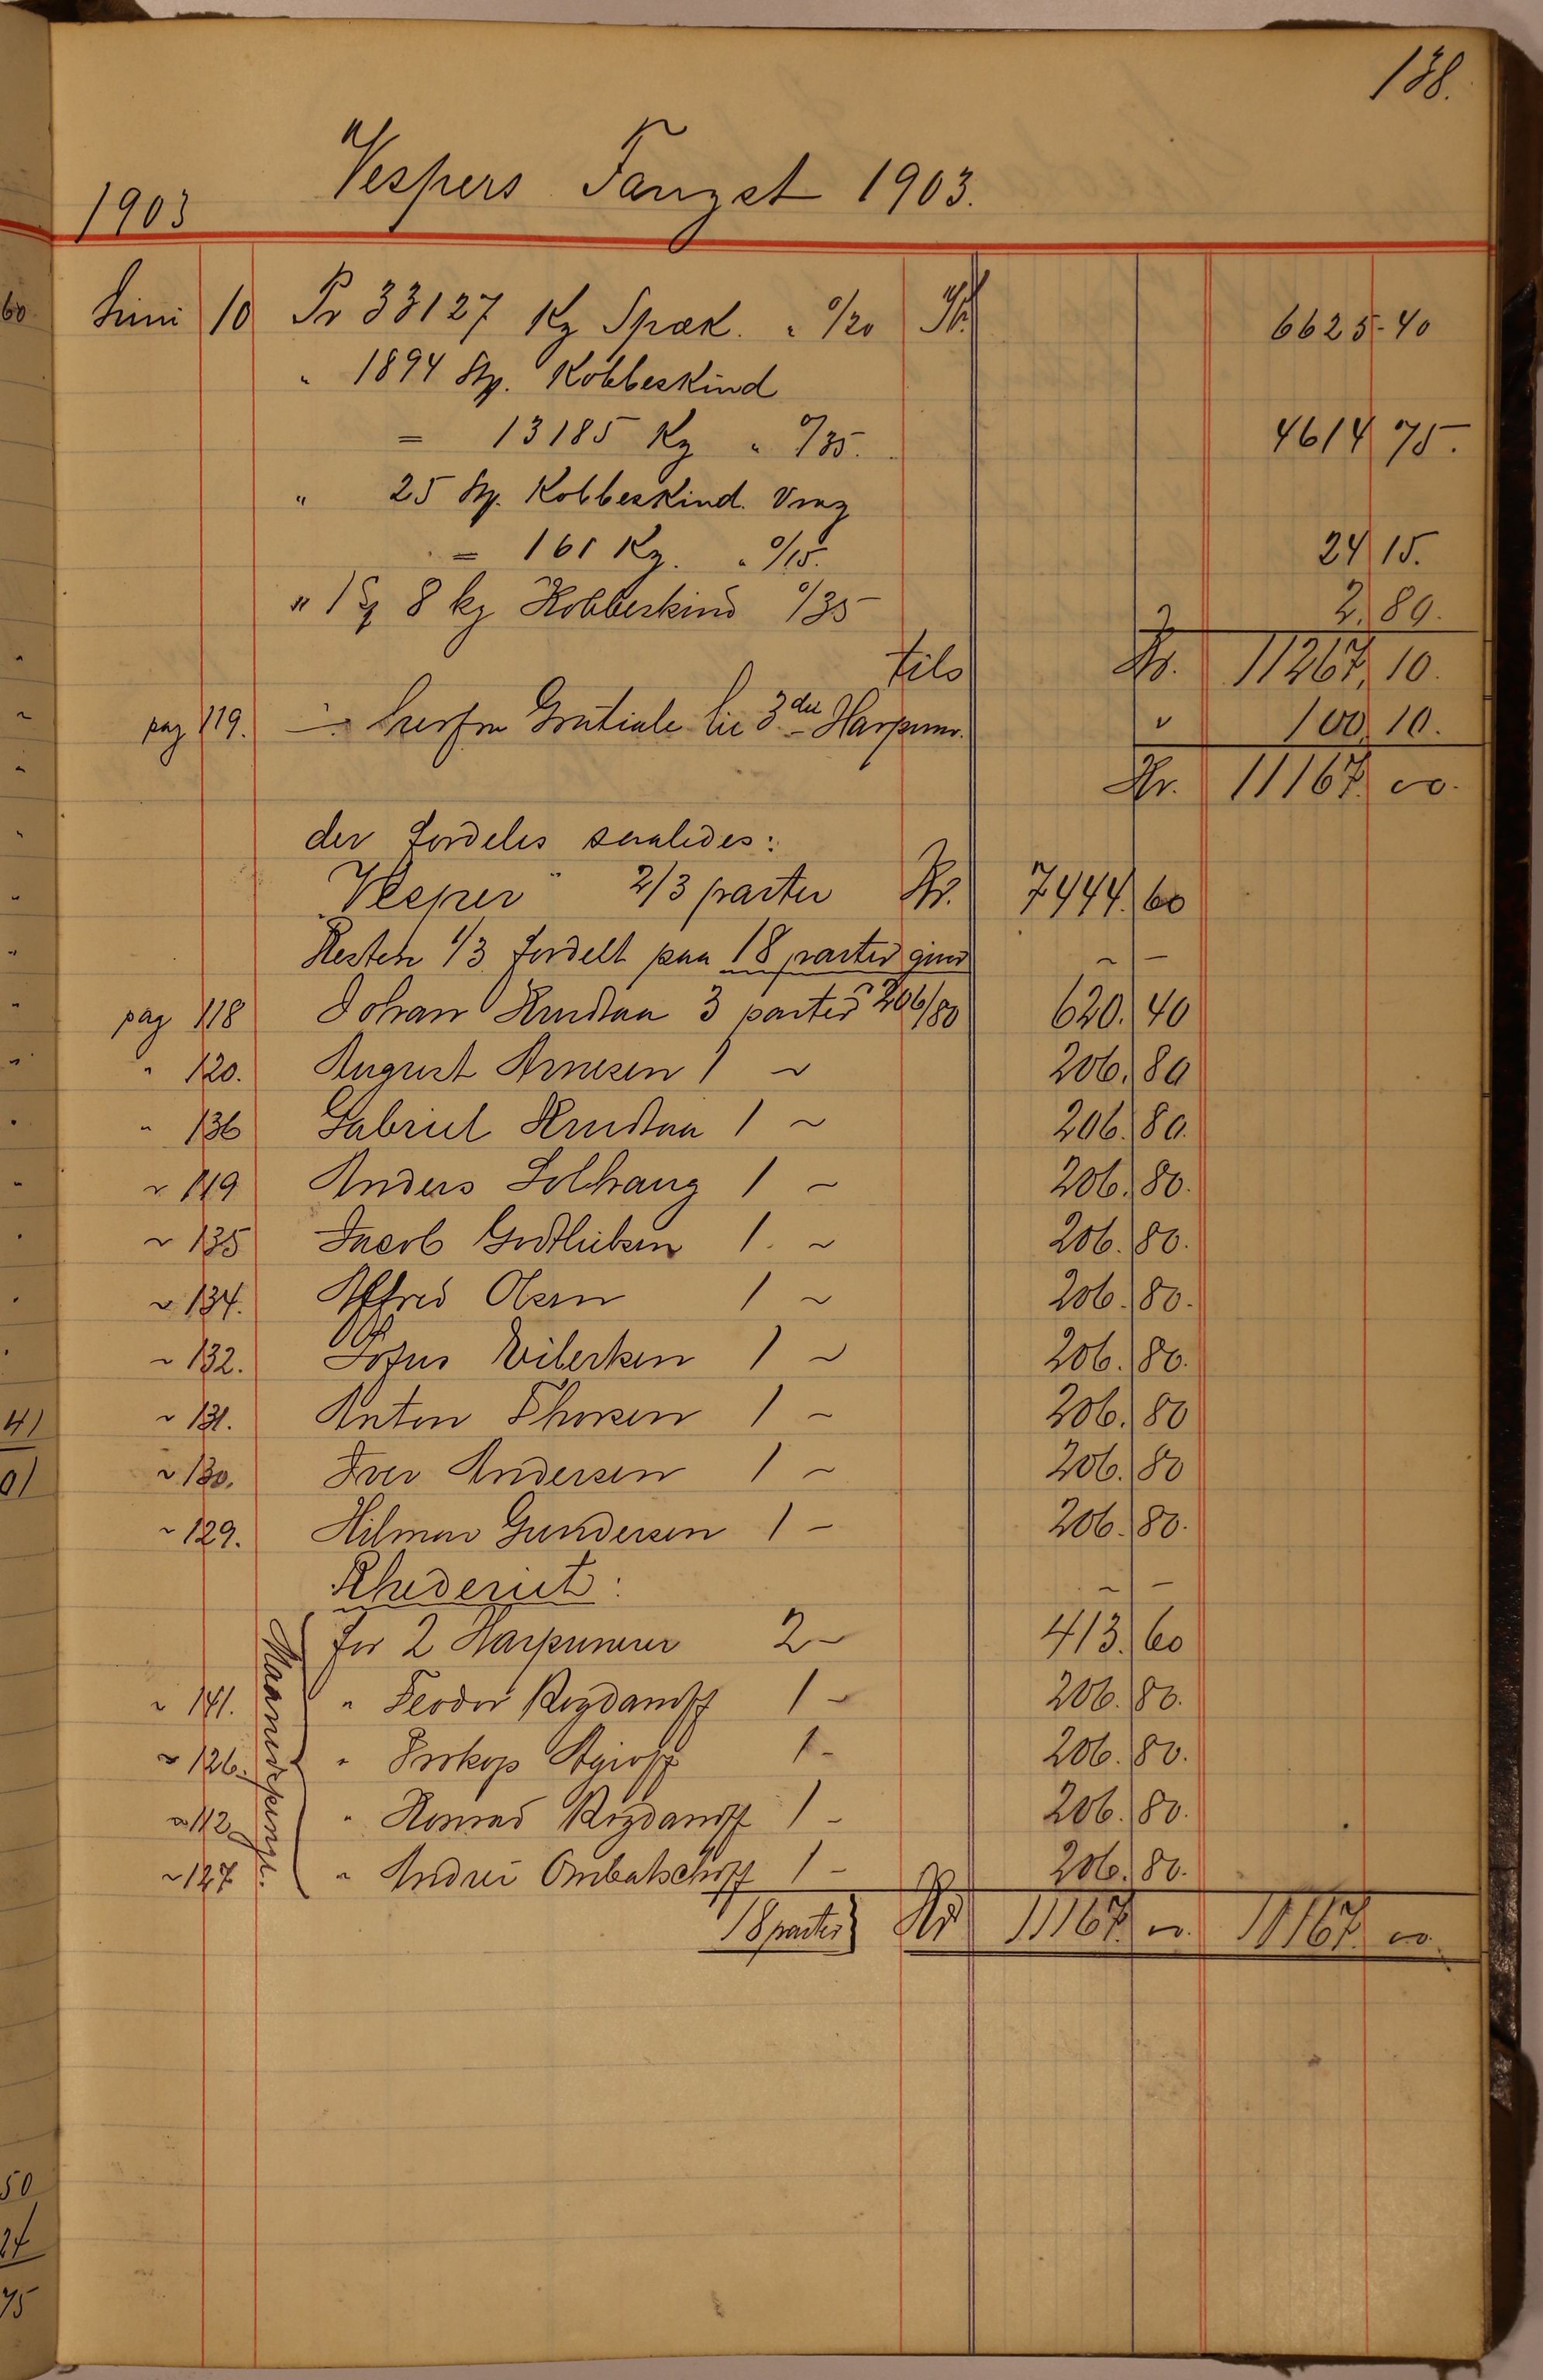 138.
1903 Vespers Fangst 1903.
Juni 10 Pr 33127 Kg Spæk. " 0/20 Kr. 6625.40
" 1894 Stk. Kobbeskind
= 13185 Kg " 0/35. 4614 75.
" 25 Stk. Kobbeskind. Vrag
= 161 Kg. " 0/15. 24 15.
" 1 Stk 8 kg Kobbeskind 0/35 2.80.
tils Kr. 11267.10.
pag 119. ÷ herfra Gratiale til 3die Harpuner. " 100.10.
Kr. 11167.00.
der fordeles saaledes:
"Vesper" 2/3 parter Kr. 7444.60
Resten 1/3 fordelt paa 18 parter
pag 118 Johan 3 parter a 206/80 620.40
" 120. August Arnesen 1 ~ 206.80
" 136 Gabriel 1 ~ 206.80.
" 119 Anders Solhaug 1 ~ 206.80.
" 135 Jacob Godtliebsen 1. ~ 206.80.
" 134. Alfred Olsen 1 ~ 206.80.
~ 132. Eilertsen 1 ~ 206.80.
~ 131. Anton Thorsen 1 ~ 206.80
~ 130. Iver Andersen 1 ~ 206.80
~ 129. Hilmar Gundersen 1 - 206.80.
Rhederiet:
for 2 Harpunerer 2 - 413.60
Maanedspenge.
~ 141. " Feodor 1 - 206.80.
~ 126. " Prokop 1 - 206.80.
~ 112 " Konrad 1 - 206.80.
~ 127 " Andrei 1 - 206.80.
18 parter Kr 11167.00. 11167.00.
60
41
01
50
24
75